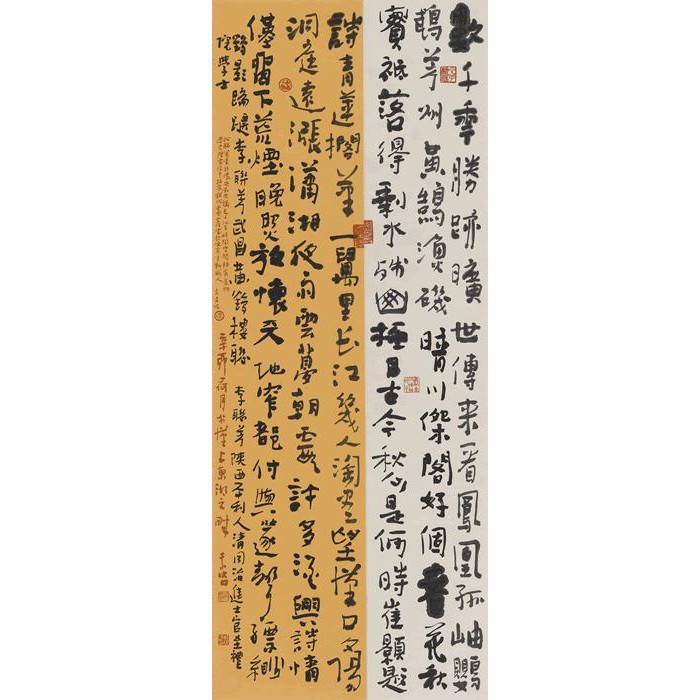 數千年勝跡曠世傳來看鳳凰孤岫鸚
鵡芳洲黃鵠漁磯晴川傑閣好個春花秋
實祗落得剩水殘山極目古今愁是何時崔顥題
詩青蓮擱筆一萬里長江幾人淘盡望漢口夕陽
洞庭遠漲瀟湘夜雨雲夢朝霞許多酒興詩情
僅留下荒煙晚照放懷天地窄都付與笛聲縹緲
鶴影蹁躚李聯芳武昌黃鶴樓聯李聯芳陝西平利人清同治進士官至
院學士
辛卯荷月於漢上東湖之畔